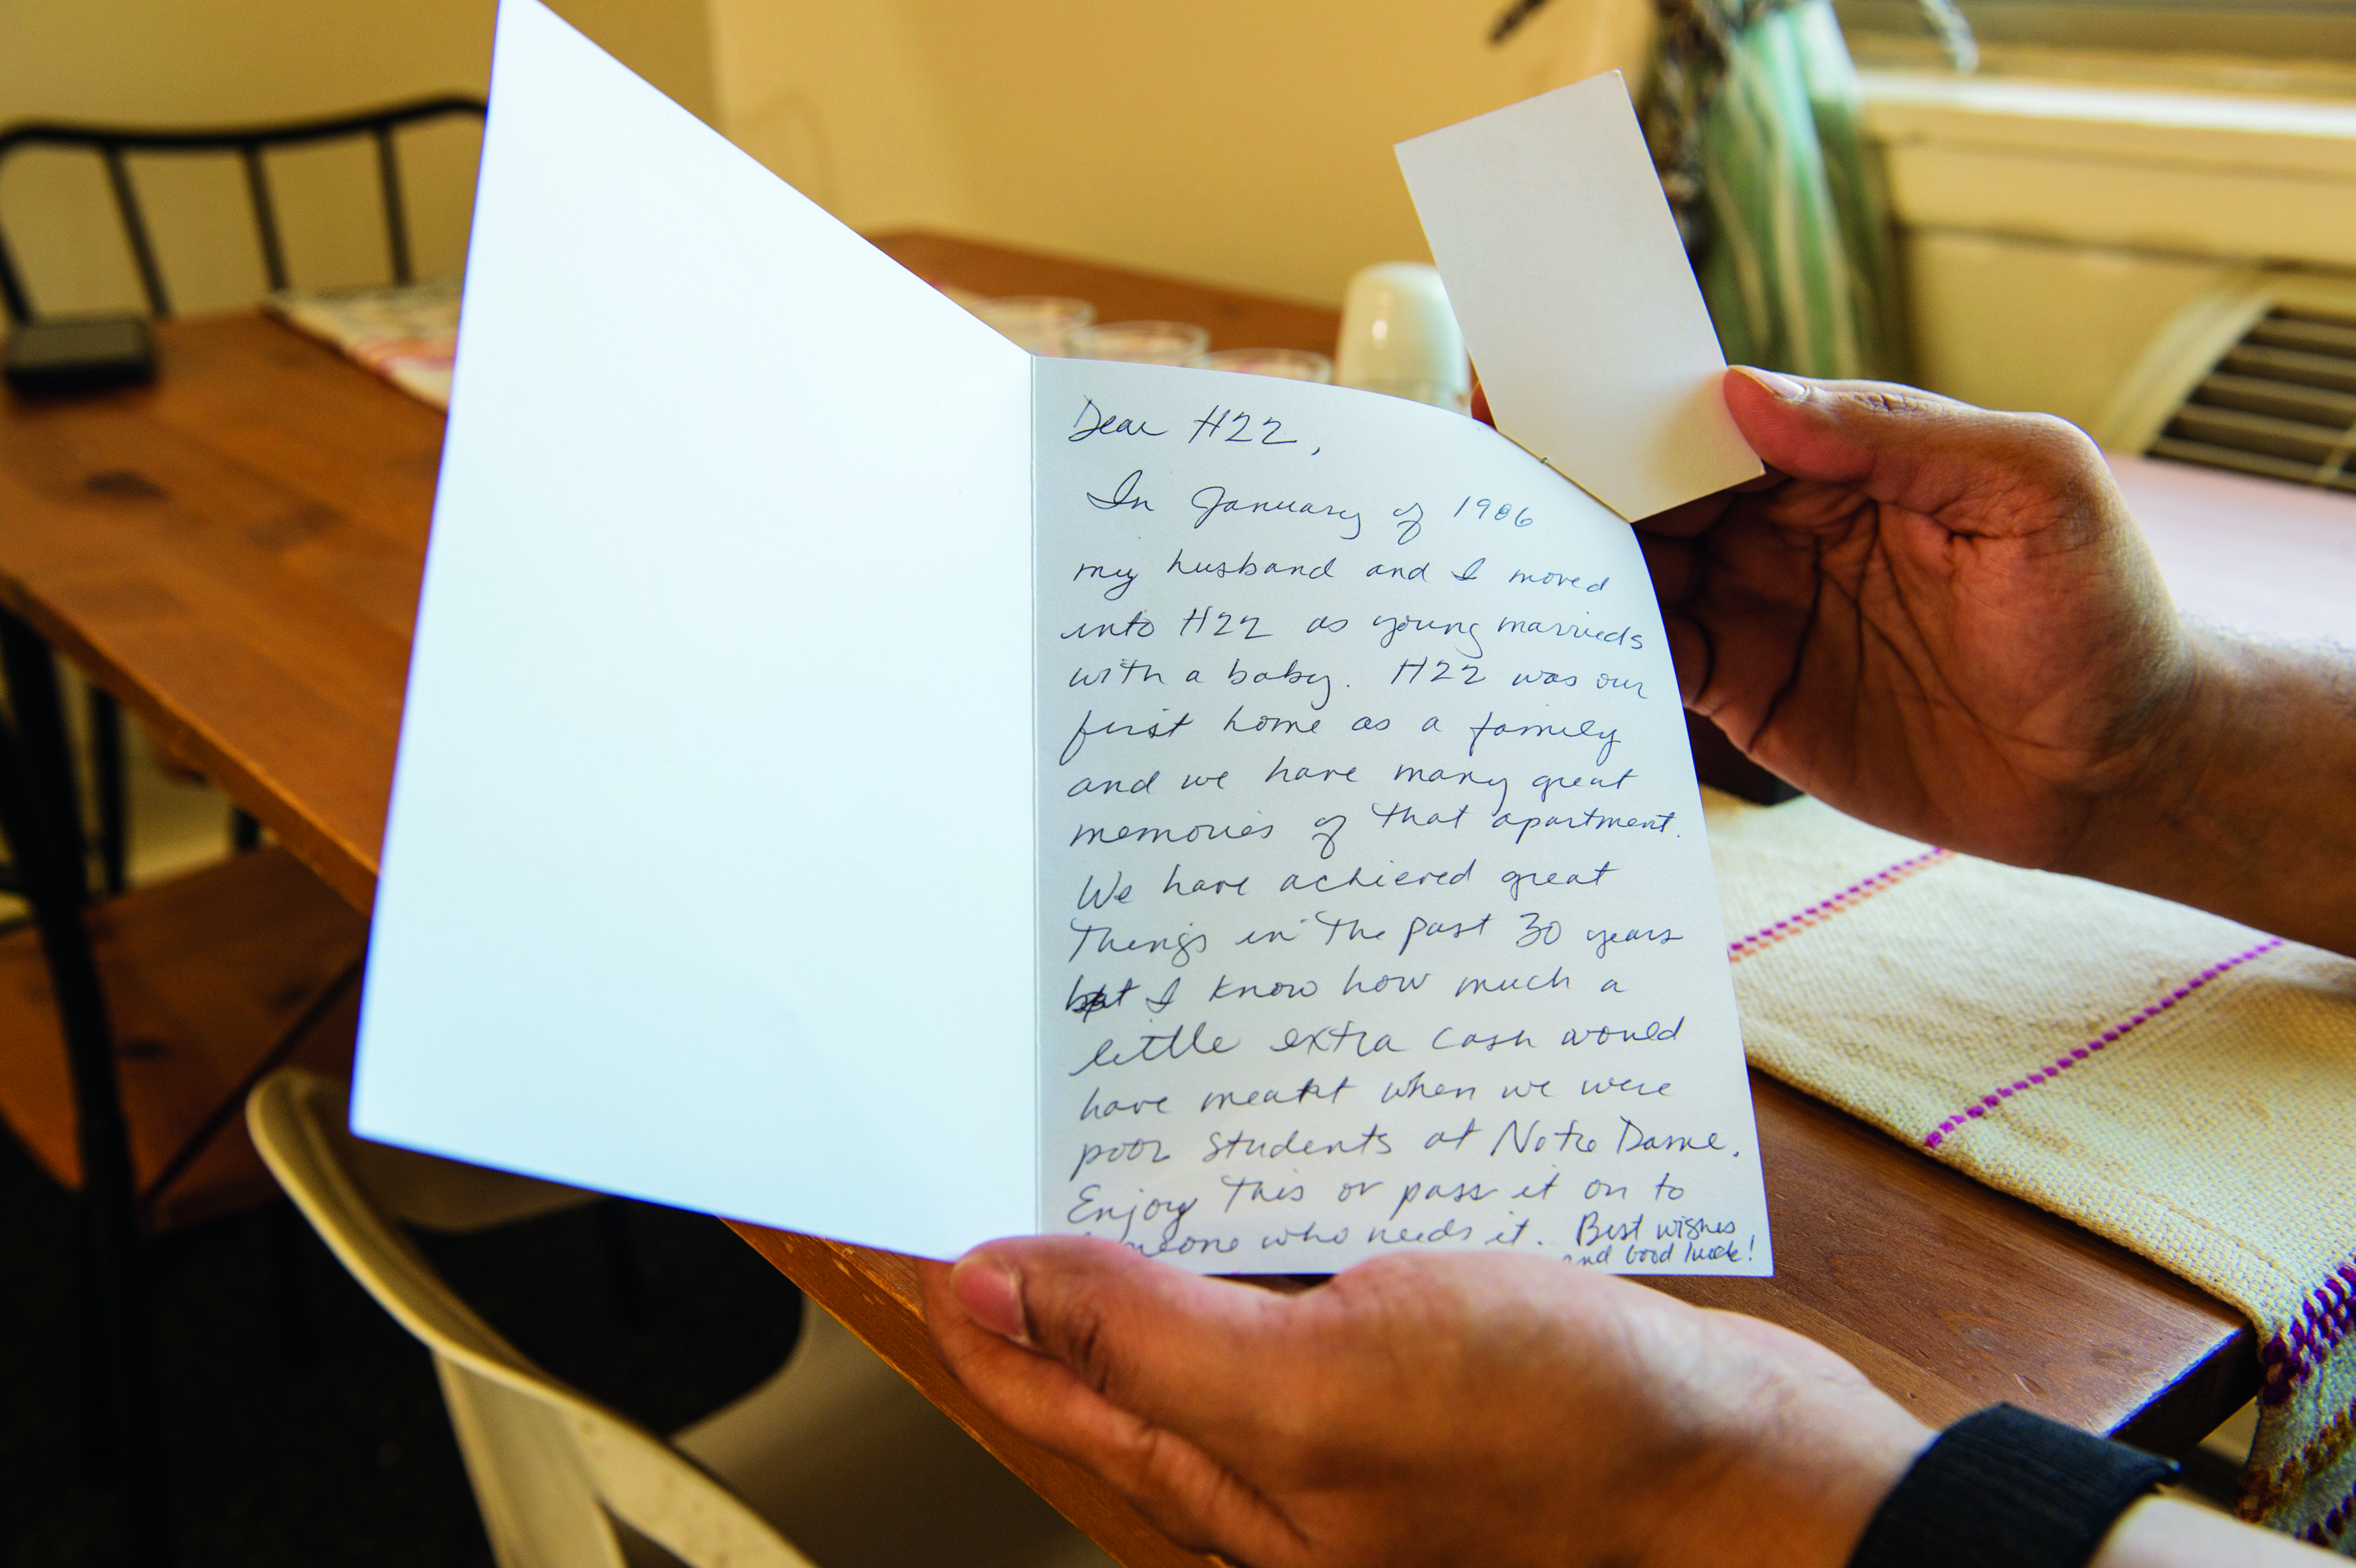 Dear H22,
In January of 1986
my husband and I moved
into H22 as young marrieds
with a baby. H22 was our
first home as a family
and we have many great
memories of that apartment.
We have achieved great
Things in The past 30 years
but I know how much a
little extra cash would
have meant when we were
poor students at Notre Dame.
Enjoy This or pass it on to
someone who needs it. Best wishes
and Good luck!